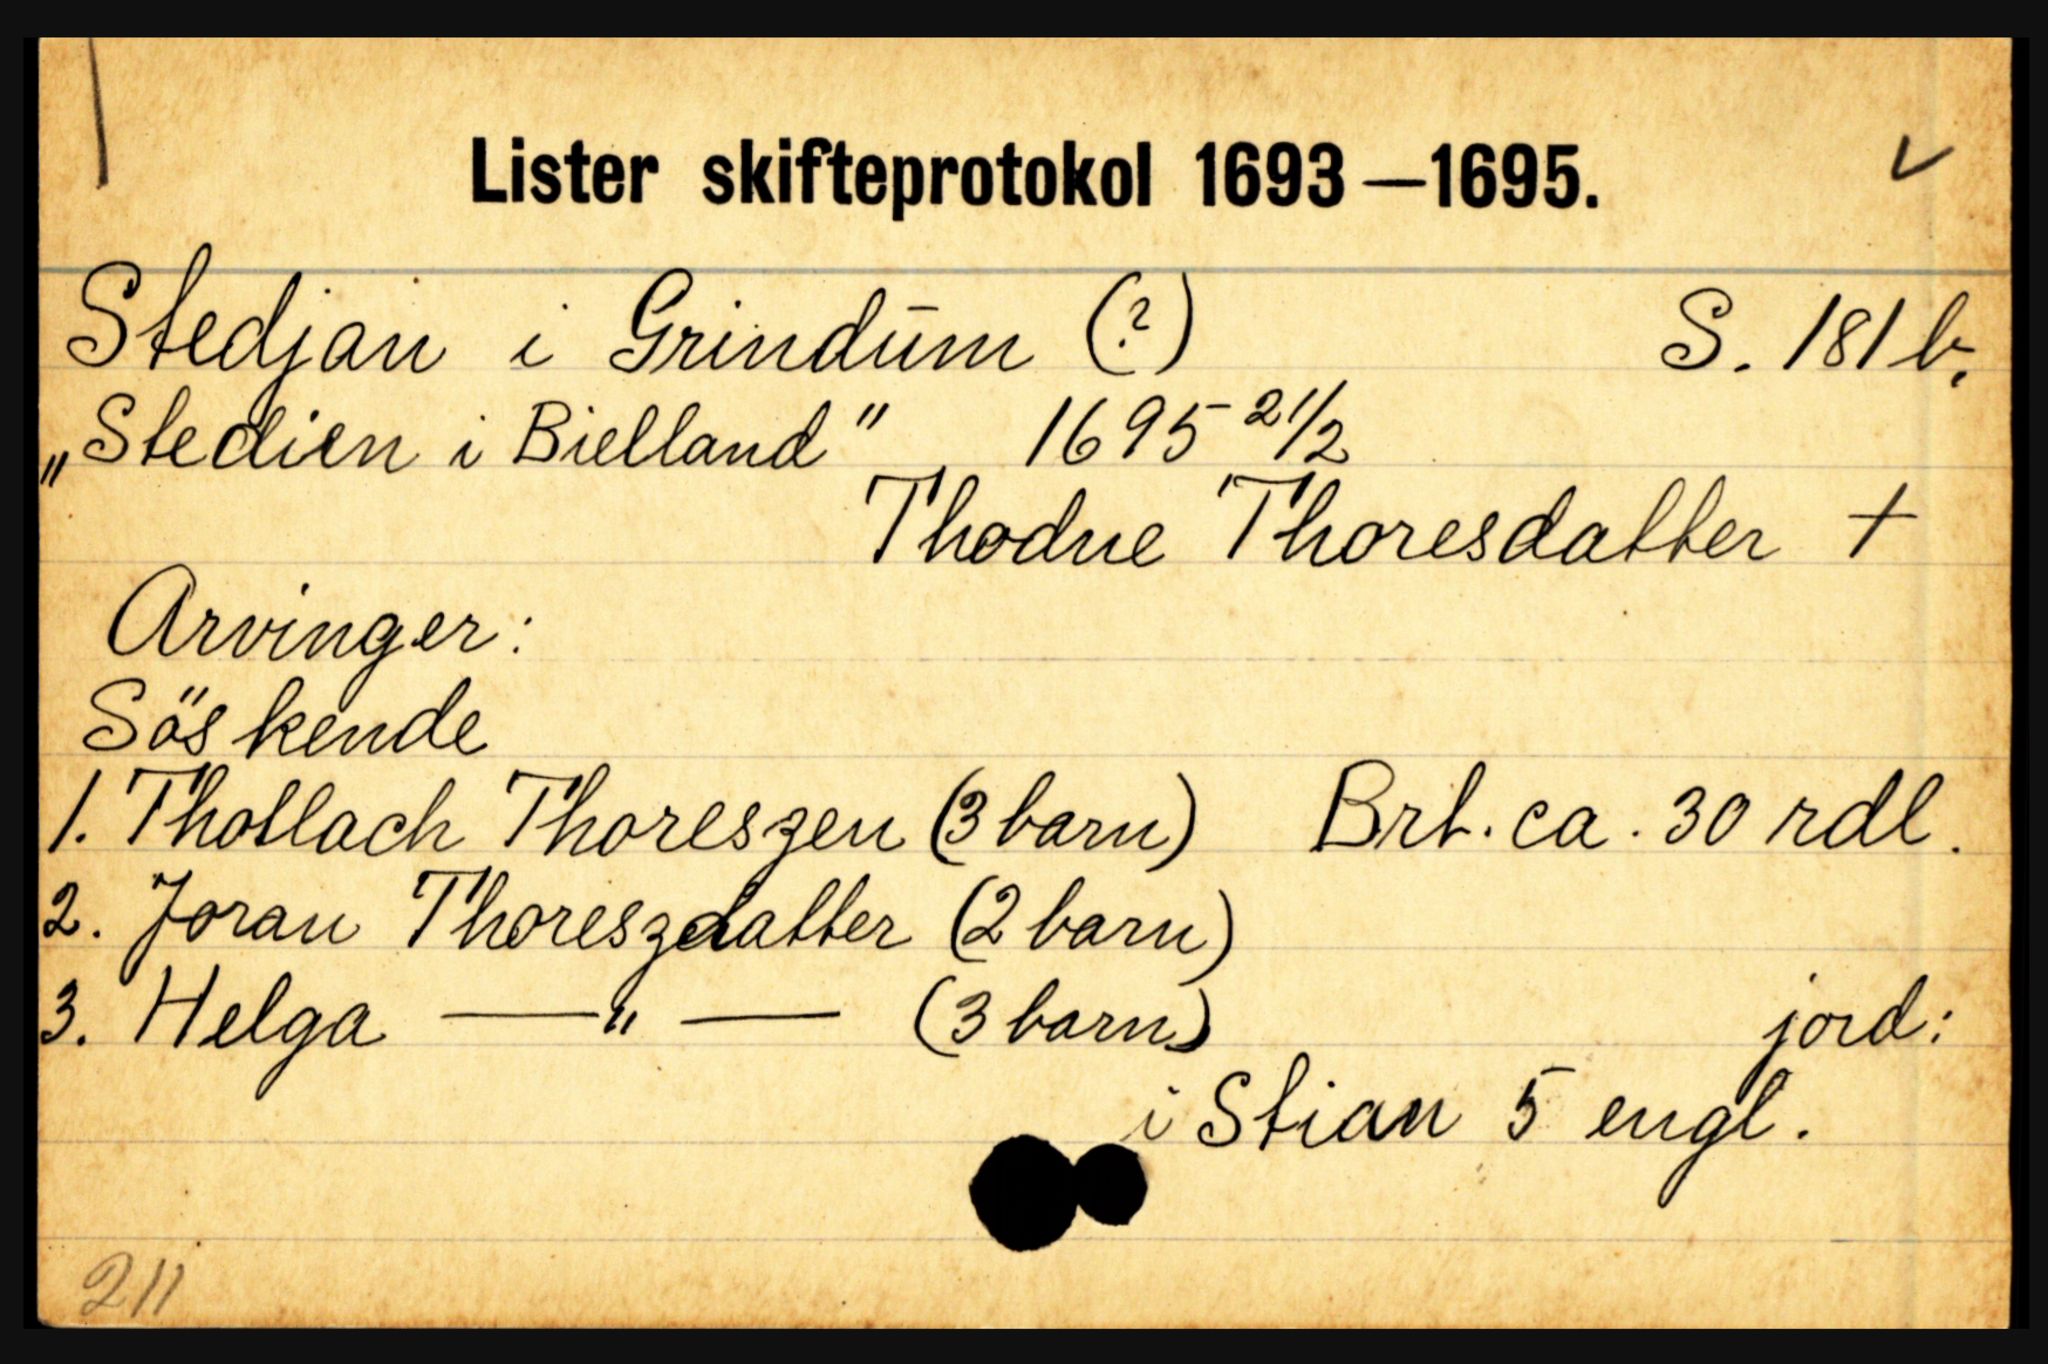 Lister skifteprotokol 1693—1695.
Stedjan i Grindum (?) S. 181 b.
„Stedien i Bielland" 1695 21/2
Thodne Thoresdatter +
Arvinger:
Söskende
1. Thollach Thoreszen (3 barn) Brt. ca. 30 rdl.
2. Joran Thoreszdatter (2 barn)
3. Helga —— " —— (3 barn)
jord:
i Stian 5 engl.
211